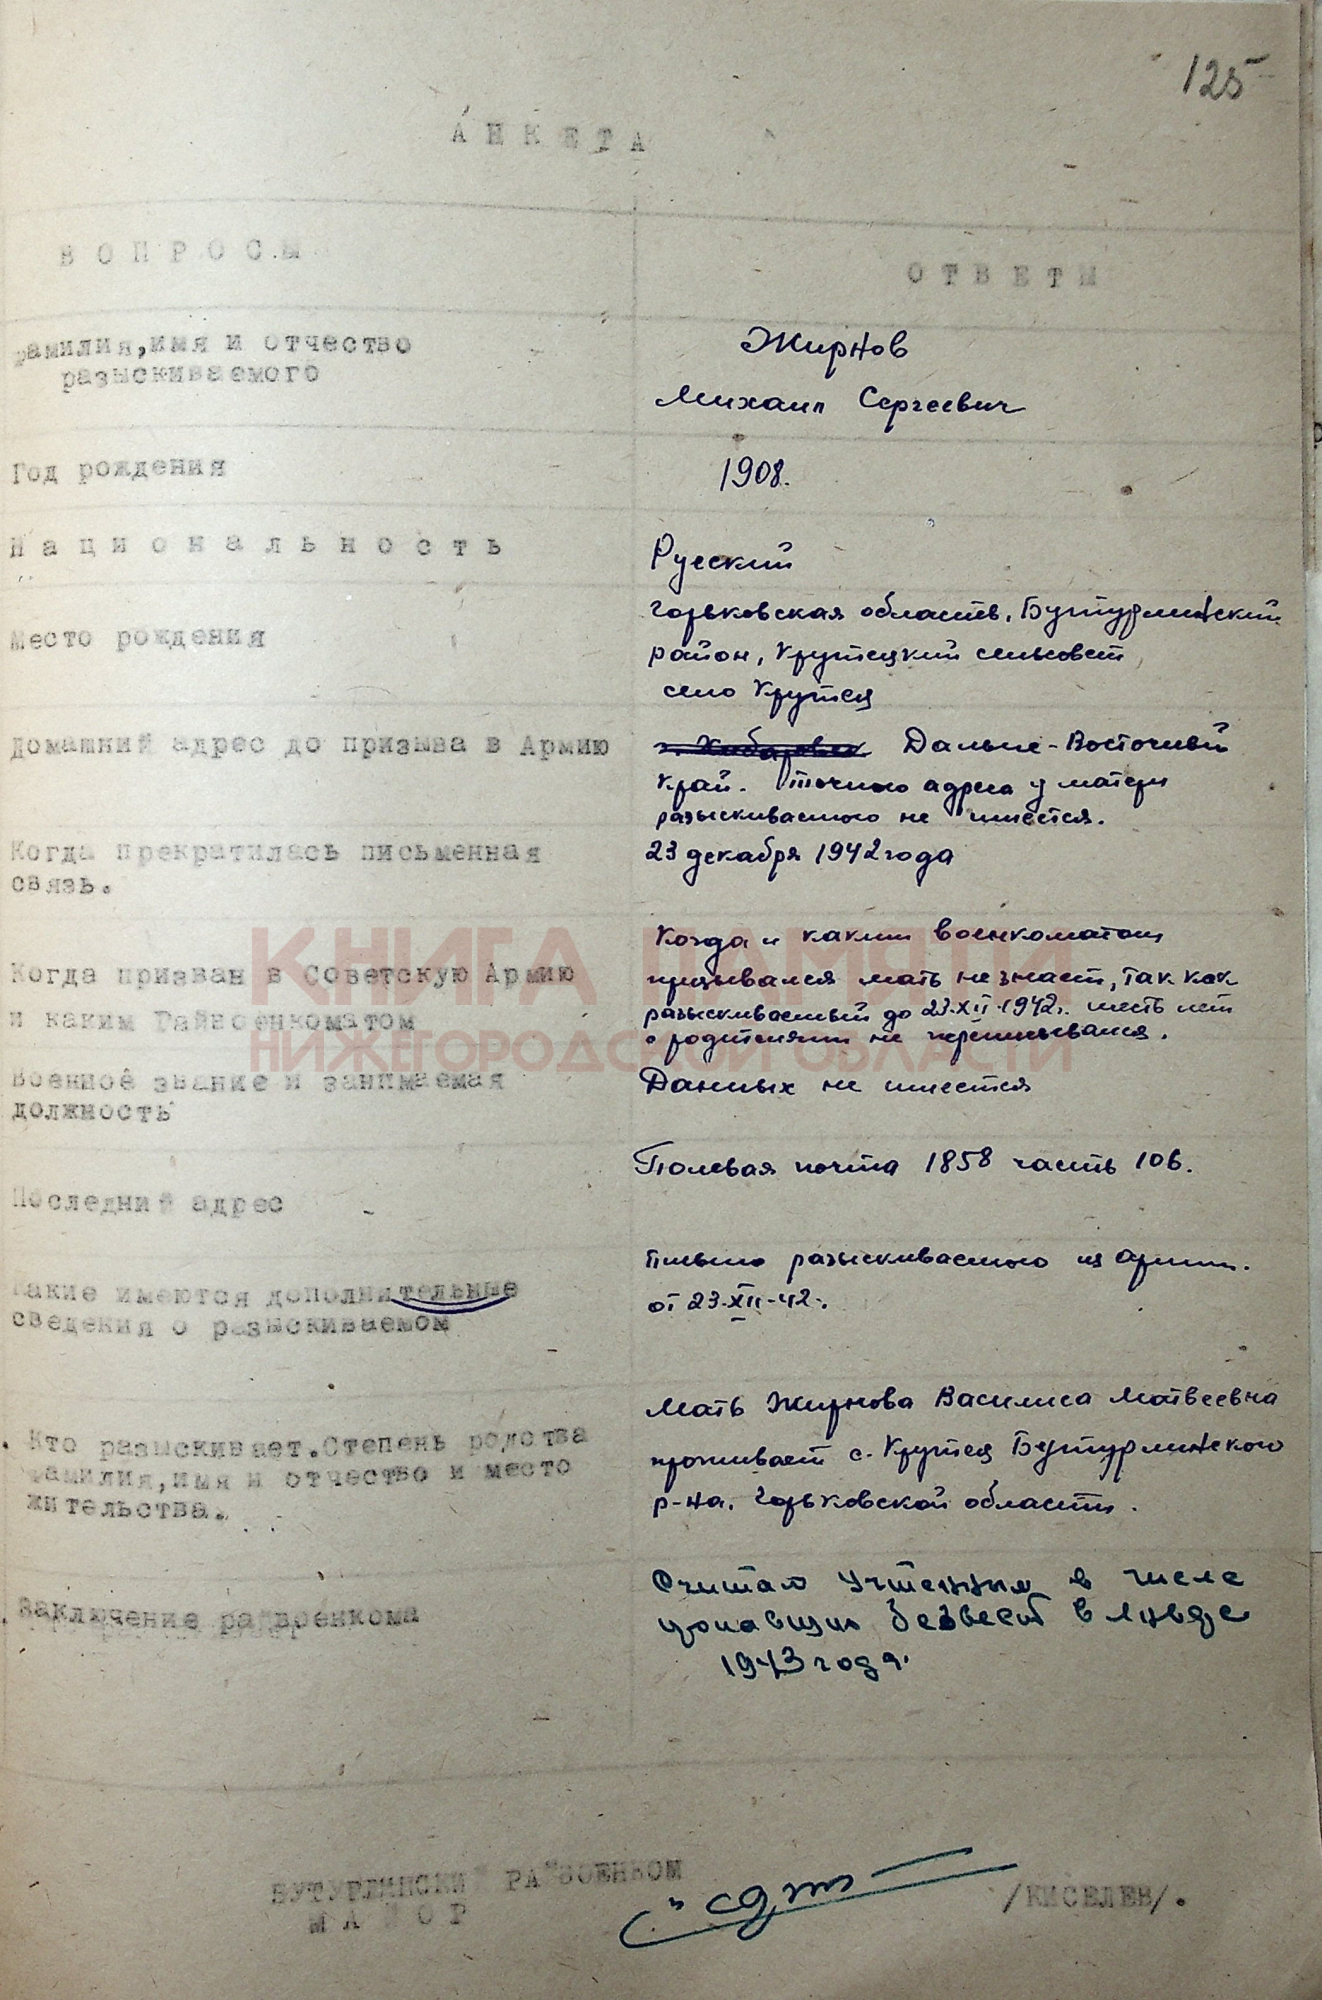 125
АНКЕТА
ВОПРОСЫ
ОТВЕТЫ
Фамилия,имя и отчество
разыскиваемого
Жирнов
Михаил Сергеевич
Год рождения
1908.
Национальность
Русский
Место рождения
Горьковская область, Бутурлинский
район, Крутецкий сельсовет,
село Крутец
Домашний адрес до призыва в Армию
г. Хабаровск Дальне-Восточный
край. Точного адреса у матери
разыскиваемого не имеется.
Когда прекратилась письменная
связь.
23 декабря 1942 года
Когда призван в Советскую Армию
и каким Райвоенкоматом
Когда и каким военкоматом
призывался мать не знает, так как
разыскиваемый до 23.XII.1942г. шесть лет
с родителями не переписывался.
Военное звание и занимаемая
должность
Данных не имеется
Последний адрес
Полевая почта 1858 часть 106.
Какие имеются дополнительные
сведения о разыскиваемом
Письмо разыскиваемого из армии.
от 23-XII-42г.
Кто разыскивает.Степень родства
фамилия,имя и отчество и место
жительства.
Мать Жирнова Василиса Матвеевна
проживает с. Крутец Бутурлинского
р-на, Горьковской области.
Заключение райвоенкома
Считаю учтенным в числе
пропавших безвест в
1943 года.
БУТУРЛИНСКИЙ РАЙВОЕНКОМ
МАЙОР
/КИСЕЛЕВ/.
КНИГА ПАМЯТИ
НИЖЕГОРОДСКОЙ ОБЛАСТИ